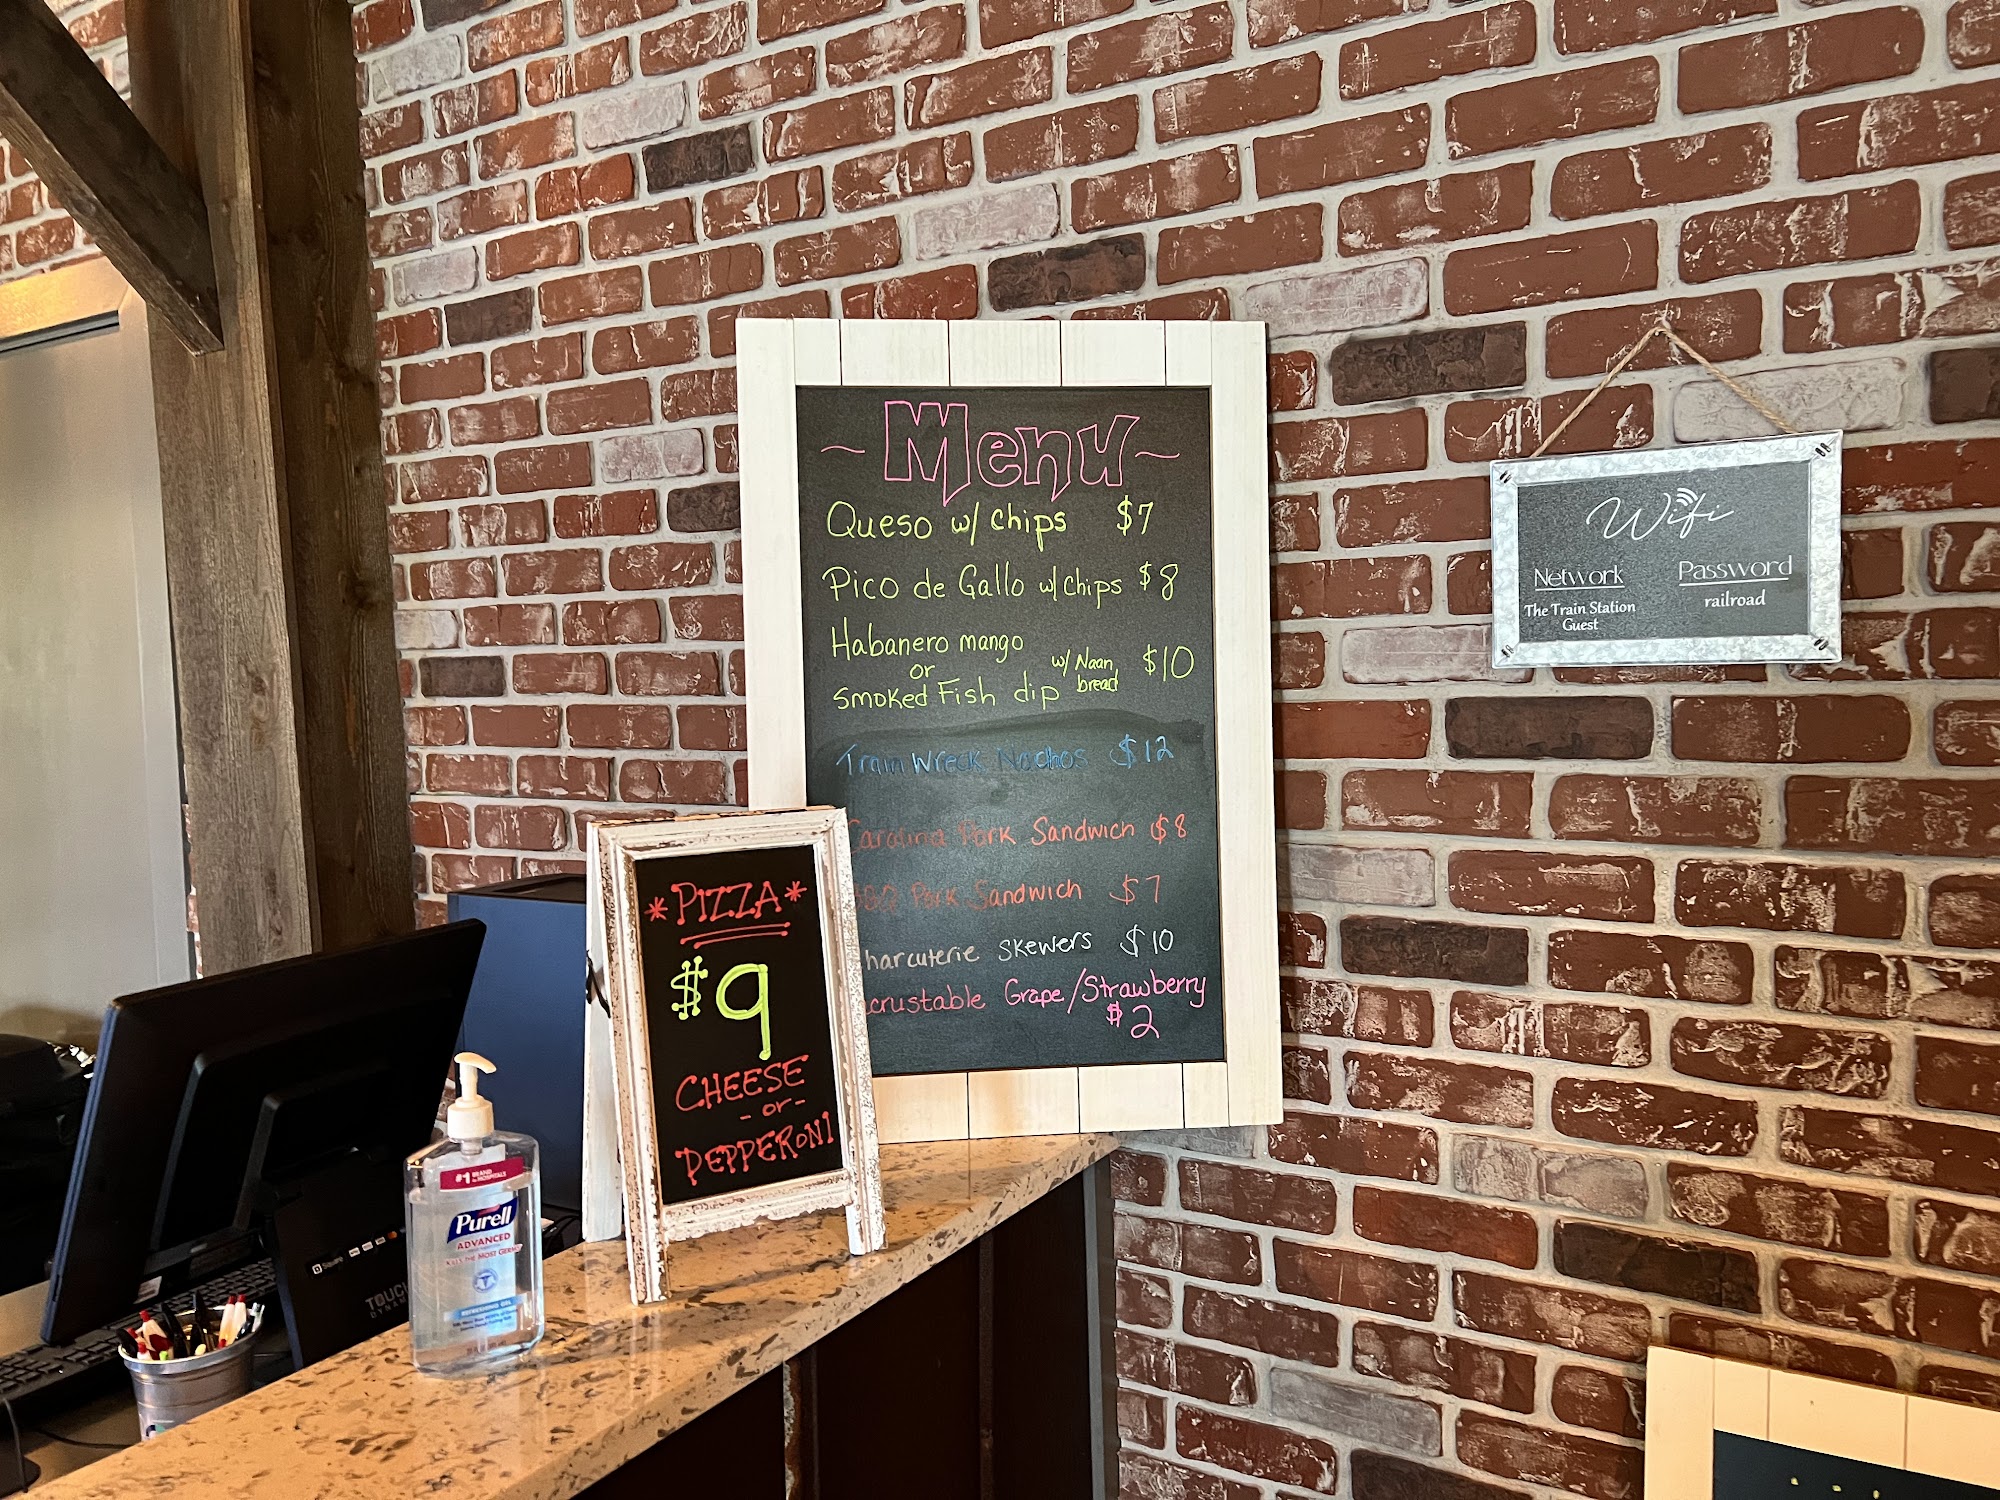 ~ Menu ~
Queso w/ chips $7
Pico de Gallo w/ chips $8
Habanero mango
or
smoked Fish dip w/ Naan bread $10
Train Wreck Nachos $12
Carolina Pork Sandwich $8
BBQ Pork Sandwich $7
harcuterie skewers $10
crustable Grape/Strawberry
$2
*PIZZA*
$9
CHEESE
- or -
PEPPERONI
Wifi
Network
The Train Station
Guest
Password
railroad
#1 BRAND
IN HOSPITALS
Purell
ADVANCED
KILLS THE MOST GERMS
REFRESHING GEL
Square
TOUCH
DYNAM